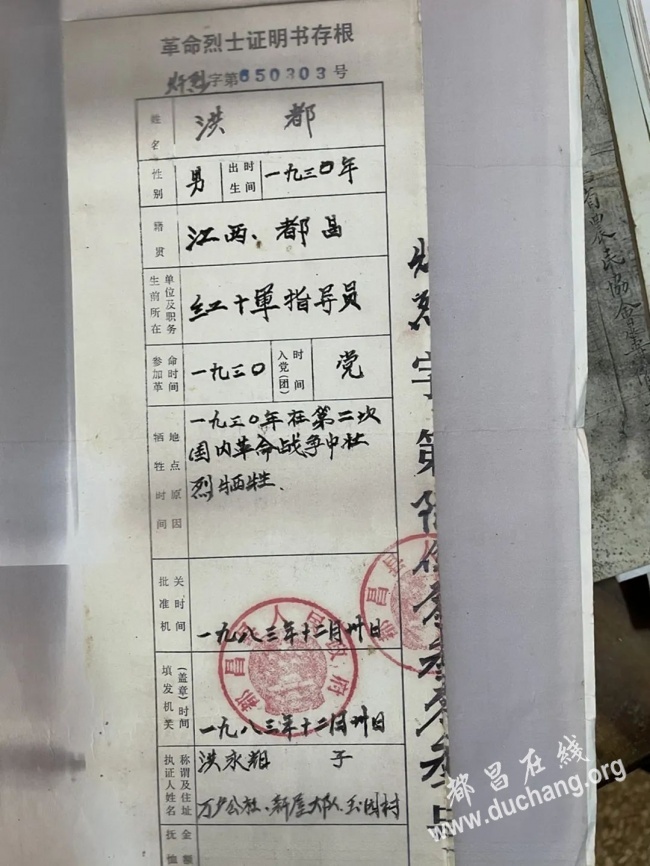 革命烈士证明书存根
字第650303号
姓名 洪都
性别 男 出生时间 一九三〇年
籍贯 江西、都昌
生前所在单位及职务 红十軍指导员
参加革命时间 一九三〇 入党(团)时间 党
牺牲时间地点原因 一九三〇年在第二次
国内革命战争中壮
烈牺牲.
批准机关时间 一九八三年十二月卅日
填发机关(盖章)时间 一九八三年十二月卅日
执证人姓名称谓及住址 洪永 子
公社、新屋大队、
抚恤金额
字第
省農民協會
都昌在线
www.duchang.org